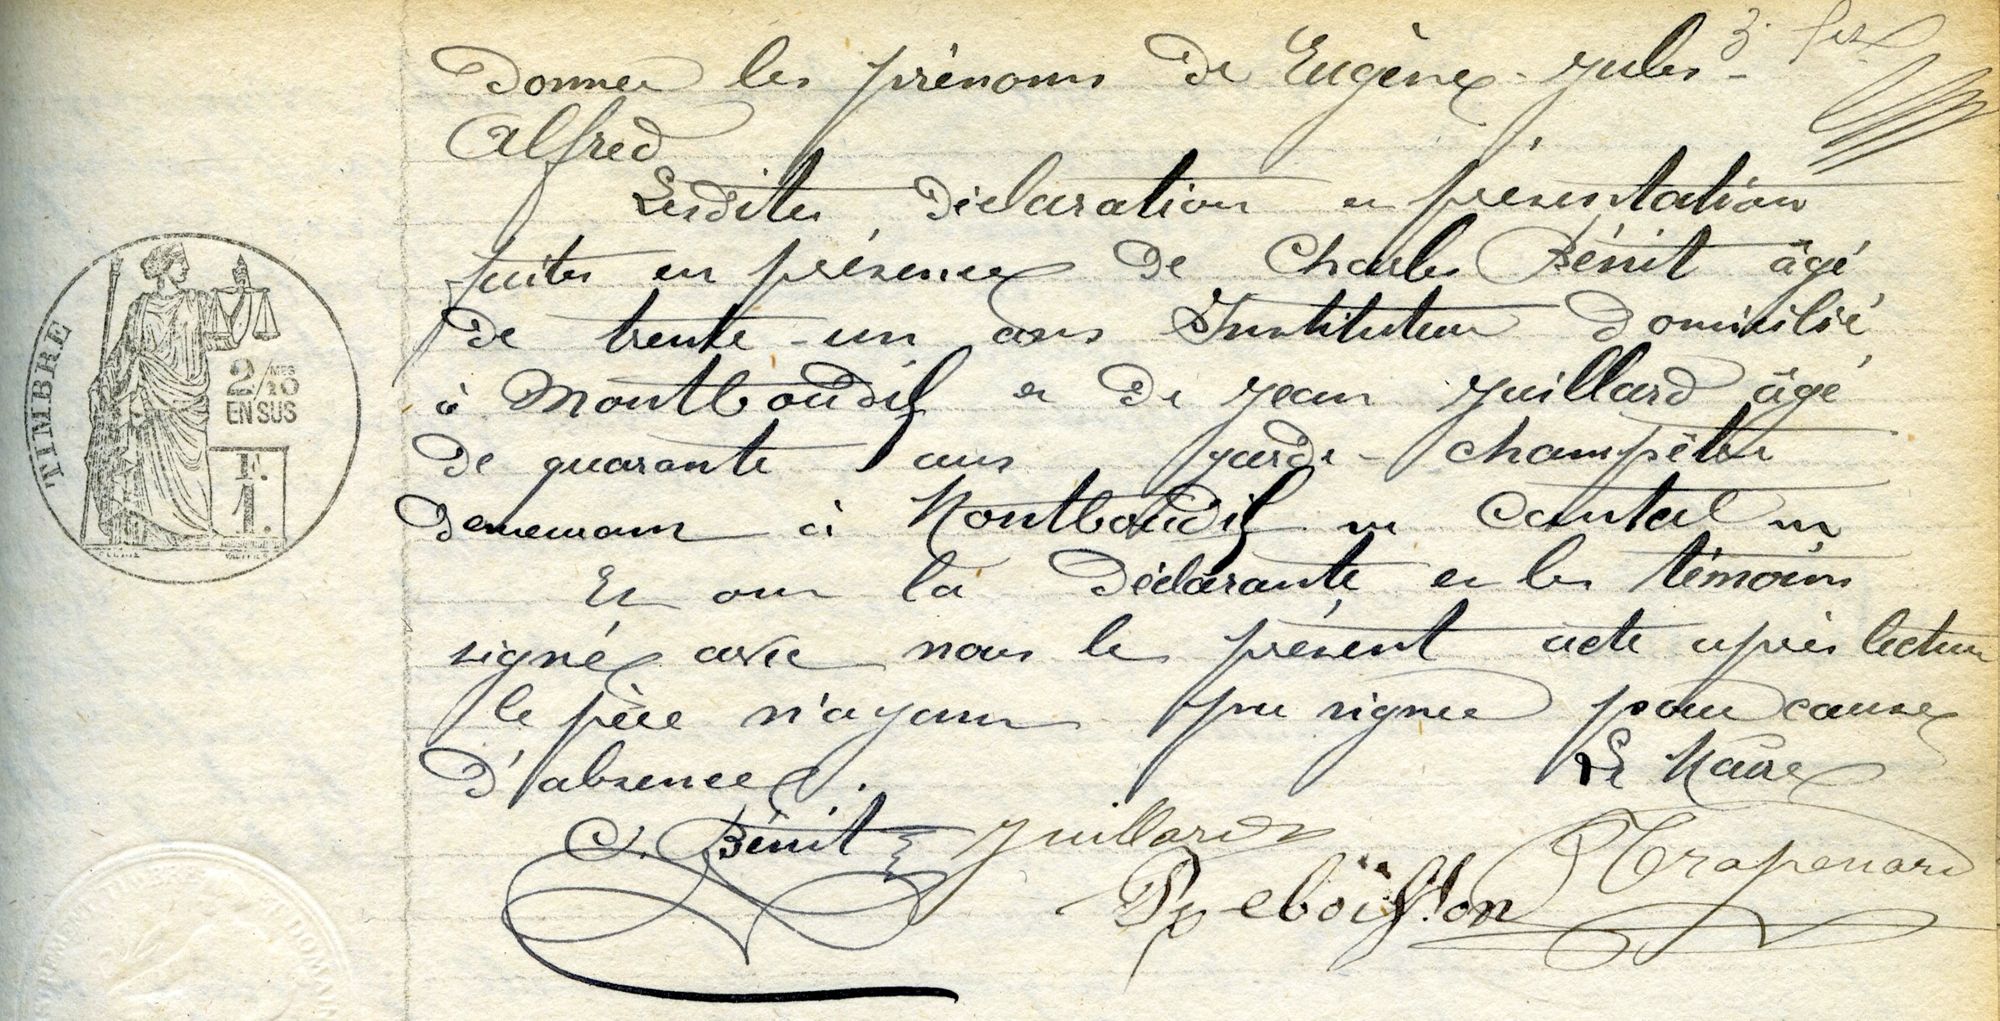 donner les prénoms de Eugène-Jules-
Alfred
Lesdites déclaration et présentation
faites en présence de Charles Bénit âgé
de trente-un ans Instituteur domicilié
à Montboudif et de Jean Juillard âgé
de quarante ans garde-champêtre
demeurant à Montboudif Cantal
Et ont la déclarante et les témoins
signé avec nous le présent acte après lecture
le père n'ayant pu signer pour cause
d'absence.
Le Maire
C. Bénit Juillard
Trapenard
TIMBRE
2/10 MES
EN SUS
F.
1.